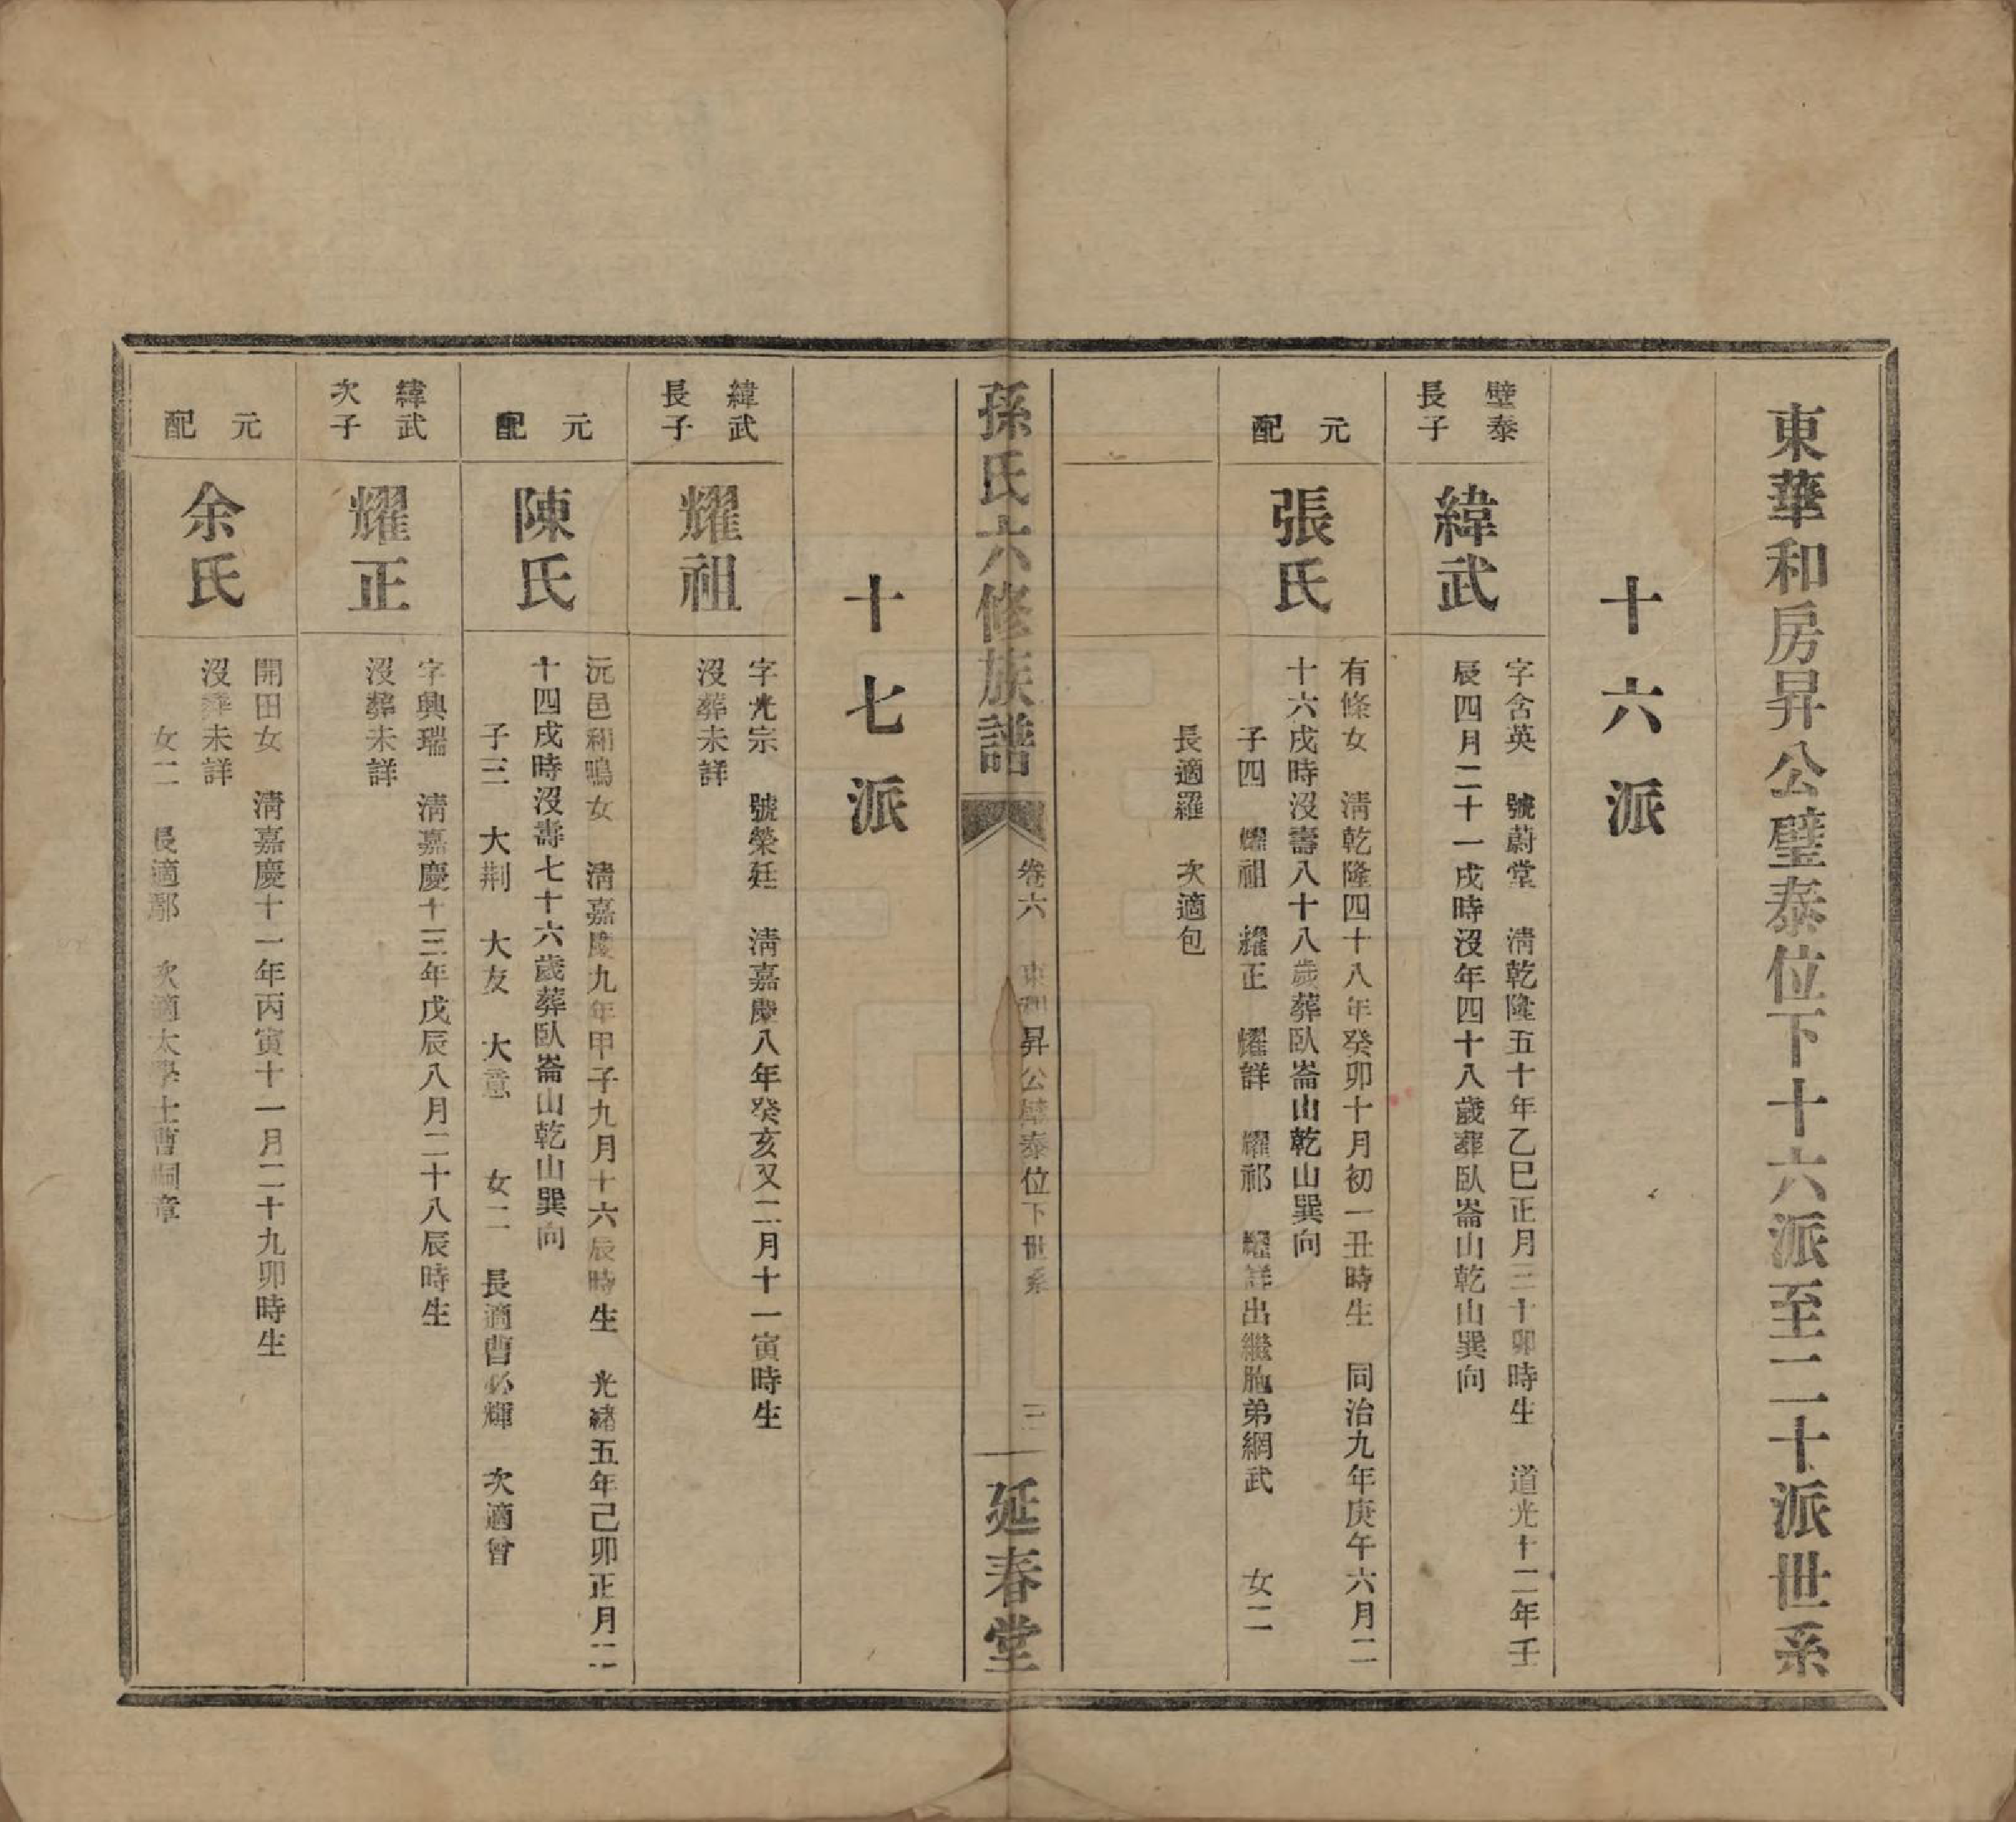 東華和房昇公璧泰位下十六派至二十派世系
十六派
璧泰
長子
緯武
字含英 號蔚堂 清乾隆五十年乙巳正月三十卯時生 道光十二年壬
辰四月二十一戌時沒年四十八歲葬臥崙山乾山巽向
元
配
張氏
有條女 清乾隆四十八年癸卯十月初一丑時生 同治九年庚午六月二
十六戌時沒壽八十八歲葬臥崙山乾山巽向
子四 耀祖 耀正 耀詳 耀祁 耀詳出繼胞弟網武 女二
長適羅 次適包
孫氏六修族譜
卷六
東和昇公璧泰位下世系
三
延春堂
十七派
緯武
長子
耀祖
字光宗 號榮廷 清嘉慶八年癸亥又二月十一寅時生
沒葬未詳
元
配
陳氏
沅邑和鳴女 清嘉慶九年甲子九月十六辰時生 光緒五年己卯正月二
十四戌時沒壽七十六歲葬臥崙山乾山巽向
子三 大荆 大友 大意 女二 長適曹必輝 次適曾
緯武
次子
耀正
字興瑞 清嘉慶十三年戊辰八月二十八辰時生
沒葬未詳
元
配
余氏
開田女 清嘉慶十一年丙寅十一月二十九卯時生
沒葬未詳
女二 長適鄢 次適太學士曹嗣章